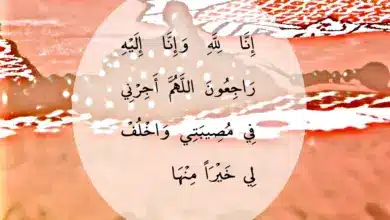 إِنَّا لِلَّهِ وَإِنَّا إِلَيْهِ
رَاجِعُونَ اللَّهُمَّ أَجِرْنِي
فِي مُصِيبَتِي وَاخْلُفْ
لِي خَيْرَاً مِنْهَا